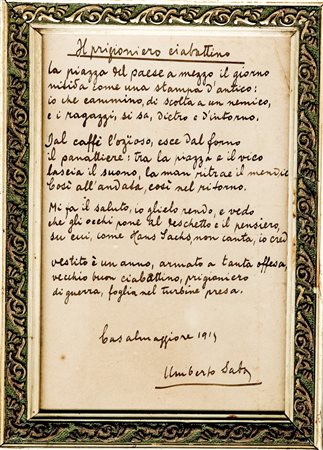 Il prigioniero ciabattino
La piazza del paese a mezzo il giorno
nitida come una stampa d'antico:
io che cammino, di scolta a un nemico,
e i ragazzi, si sa, dietro e d'intorno.
Dal caffè l'ozioso, esce dal forno
il panattiere: tra la piazza e il vico
lascia il suono, la man ritrae il mendico
Così all'andata, così nel ritorno.
Mi fa il saluto, io glielo rendo, e vedo
che gli occhi pone al deschetto e il pensiero,
su cui, come Hans Sachs, non canta, io cred
vestito è un anno, armato a tanta offesa,
vecchio buon ciabattino, prigioniero
di guerra, foglia nel turbine presa.
Casalmaggiore
Umberto Saba